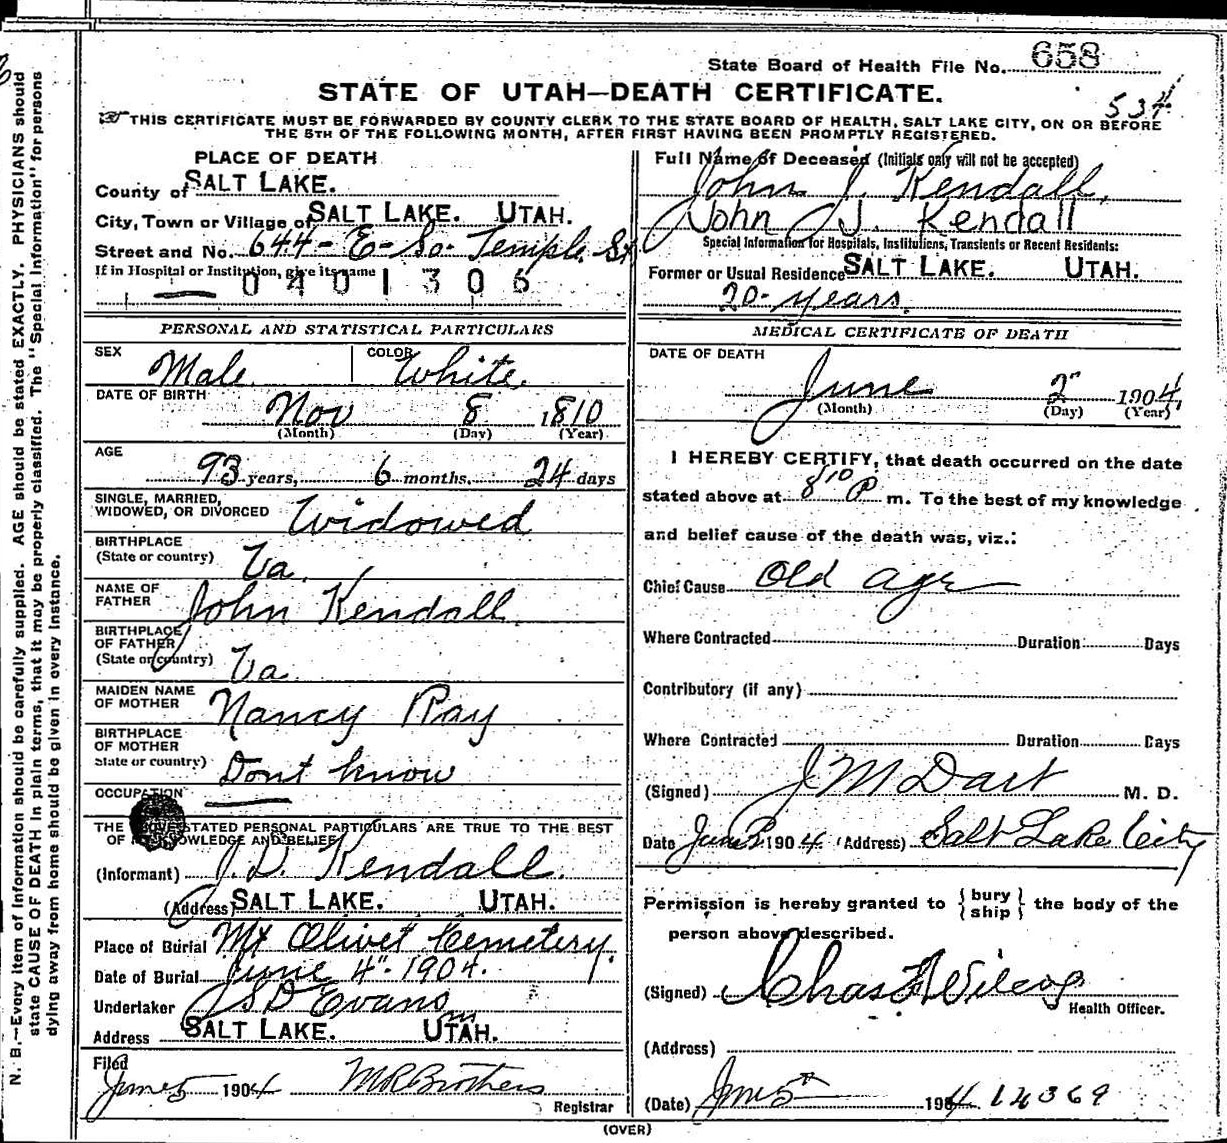 State Board of Health File No. 658
STATE OF UTAH—DEATH CERTIFICATE.
534
THIS CERTIFICATE MUST BE FORWARDED BY COUNTY CLERK TO THE STATE BOARD OF HEALTH, SALT LAKE CITY, ON OR BEFORE
THE 5TH OF THE FOLLOWING MONTH, AFTER FIRST HAVING BEEN PROMPTLY REGISTERED.
PLACE OF DEATH
County of SALT LAKE.
City, Town or Village of SALT LAKE. UTAH.
Street and No. 644 - E - So. Temple St
If in Hospital or Institution, give its name
0401306
Full Name of Deceased (Initials only will not be accepted)
John J. Kendall,
John J. Kendall
Special Information for Hospitals, Institutions, Transients or Recent Residents:
Former or Usual Residence SALT LAKE. UTAH.
20 - years.
PERSONAL AND STATISTICAL PARTICULARS
SEX Male COLOR White.
DATE OF BIRTH Nov 8 1810
(Month) (Day) (Year)
AGE
93 years, 6 months, 24 days
SINGLE, MARRIED,
WIDOWED, OR DIVORCED Widowed
BIRTHPLACE
(State or country) Va.
NAME OF
FATHER John Kendall.
BIRTHPLACE
OF FATHER
(State or country) Va.
MAIDEN NAME
OF MOTHER Nancy Ray
BIRTHPLACE
OF MOTHER
State or country) Dont know
OCCUPATION
THE ABOVE STATED PERSONAL PARTICULARS ARE TRUE TO THE BEST
OF MY KNOWLEDGE AND BELIEF
(Informant) J. D. Kendall.
(Address) SALT LAKE. UTAH.
Place of Burial Mt Olivet Cemetery.
Date of Burial June 4" 1904.
Undertaker S D Evans
Address SALT LAKE. UTAH.
Filed
June 5 1904 M R Brothers
Registrar
MEDICAL CERTIFICATE OF DEATH
DATE OF DEATH
June 2" 1904
(Month) (Day) (Year)
I HEREBY CERTIFY, that death occurred on the date
stated above at 8 10 P m. To the best of my knowledge
and belief cause of the death was, viz.:
Chief Cause Old age
Where Contracted Duration Days
Contributory (if any)
Where Contracted Duration Days
(Signed) J M Dart M. D.
Date June 1904 (Address) Salt Lake City
Permission is hereby granted to { bury ship } the body of the
person above described.
(Signed) Chas F Wilcox
Health Officer.
(Address)
(Date) June 5 1904 14369
(OVER)
N. B.—Every item of information should be carefully supplied. AGE should be stated EXACTLY. PHYSICIANS should
state CAUSE OF DEATH in plain terms, that it may be properly classified. The "Special Information" for persons
dying away from home should be given in every instance.